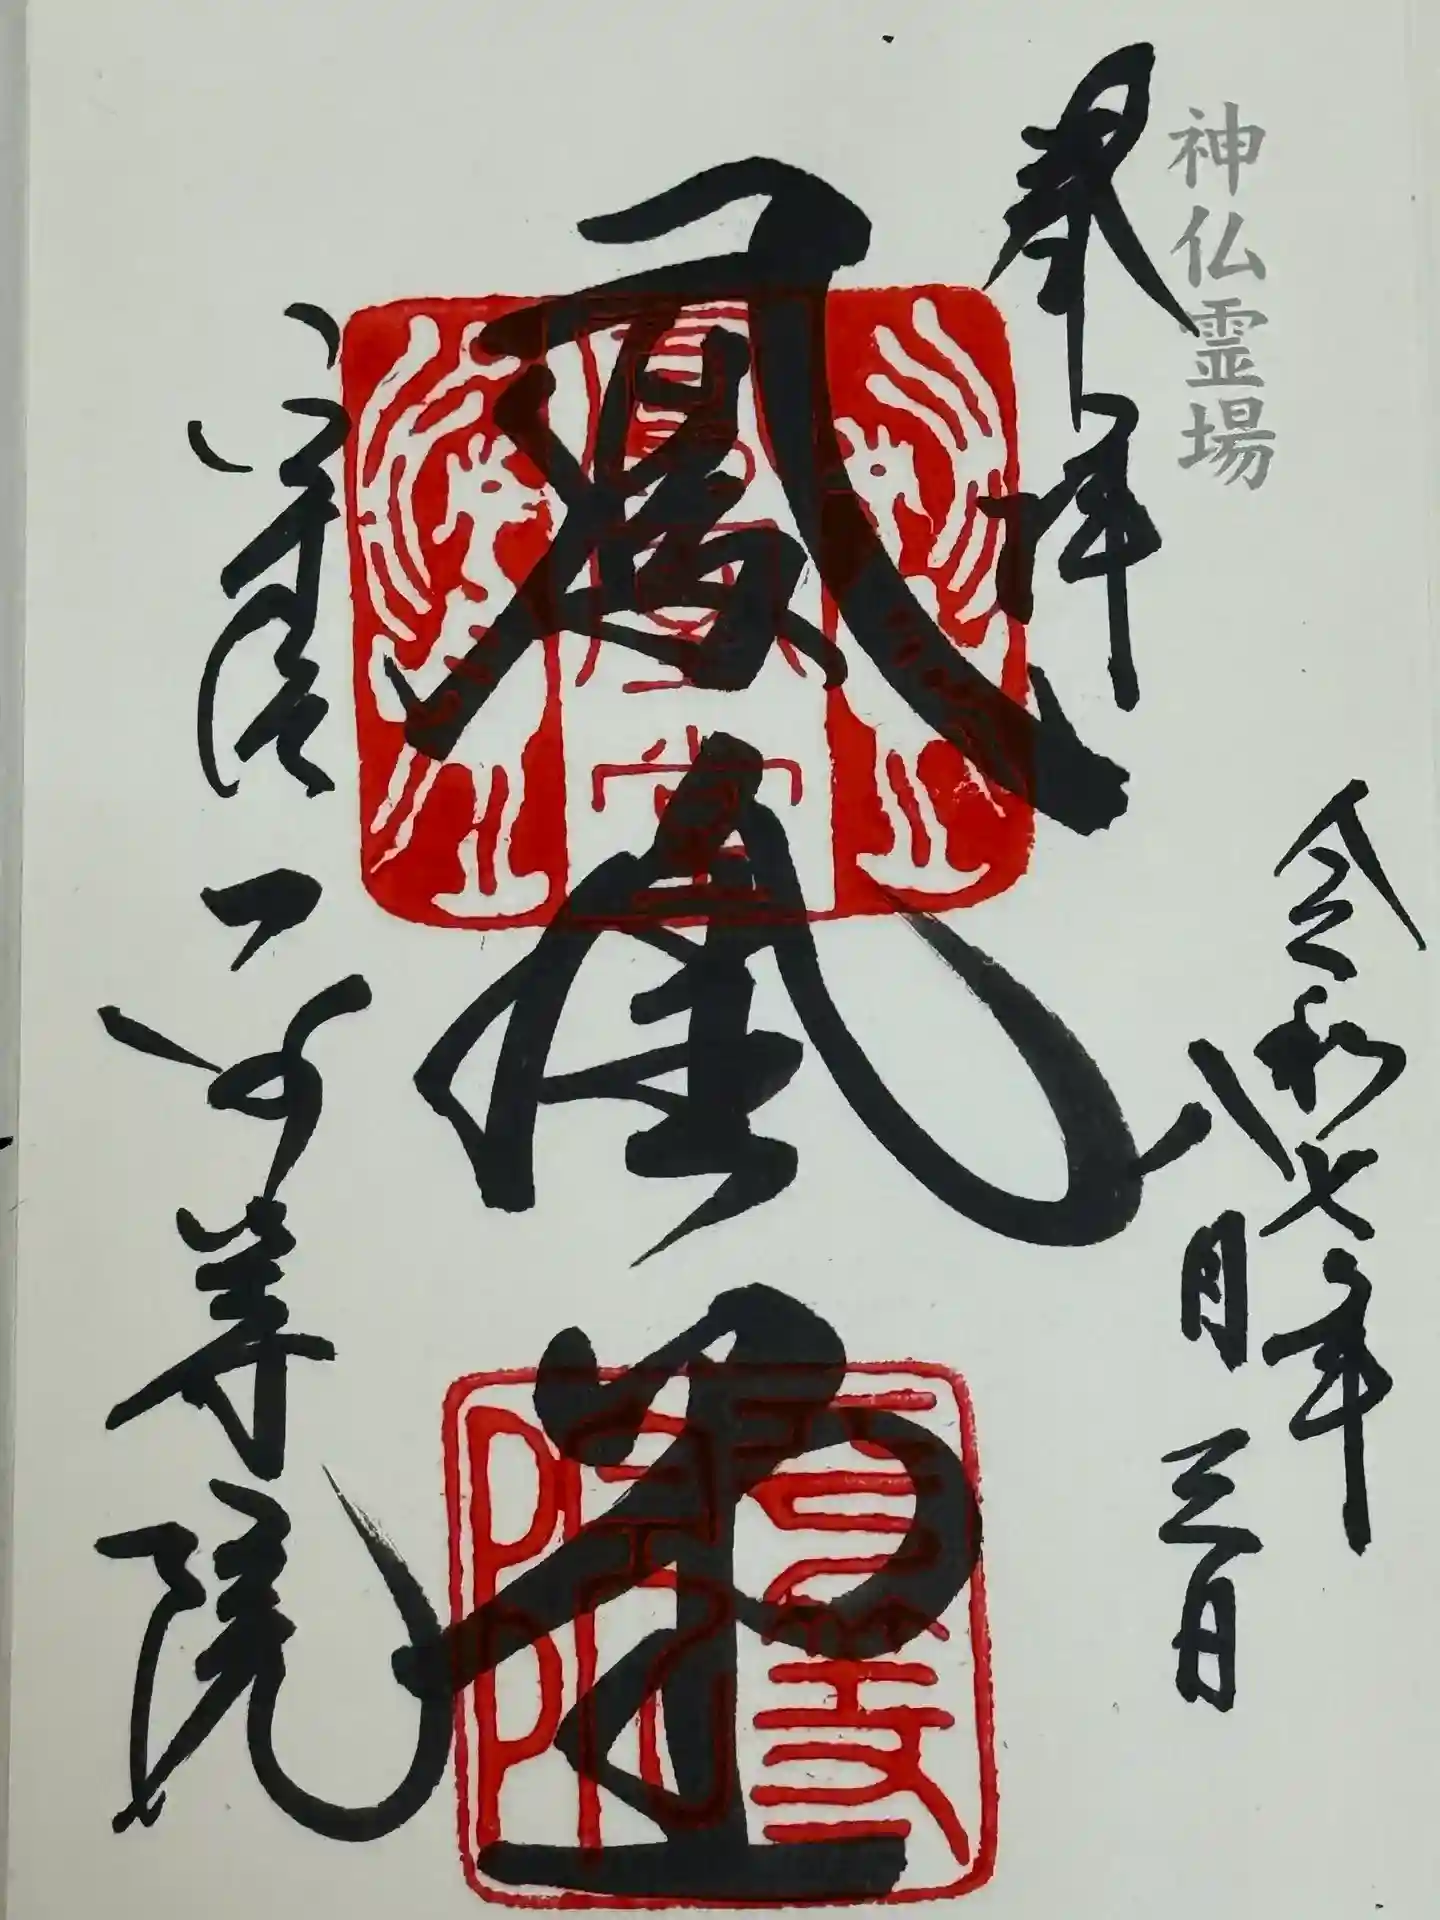 神仏霊場
奉拝
令和七年
八月三日
鳳凰堂
宇治 平等院